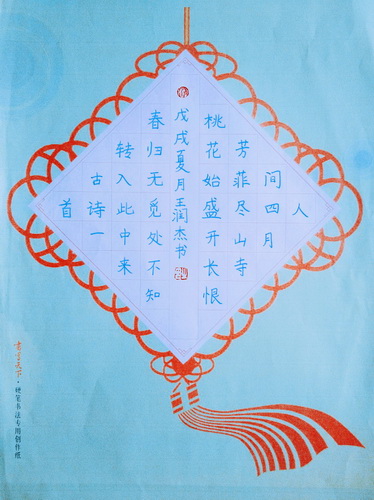 人
间四月
芳菲尽山寺
桃花始盛开长恨
戊戌夏月王润杰书
春归无觅处不知
转入此中来
古诗一
首
·硬笔书法专用创作纸